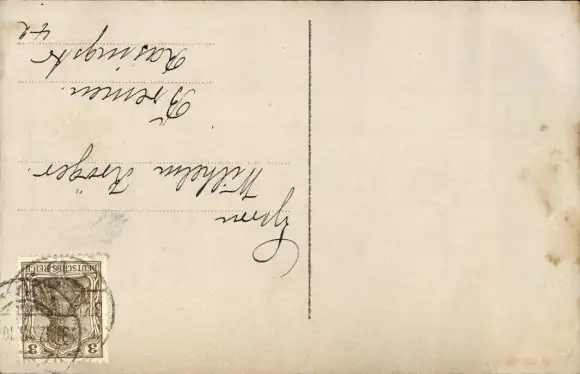 Herrn
Wilhelm Kröger.
Bremen.
Rasingstr
42
DEUTSCHES REICH
3 3